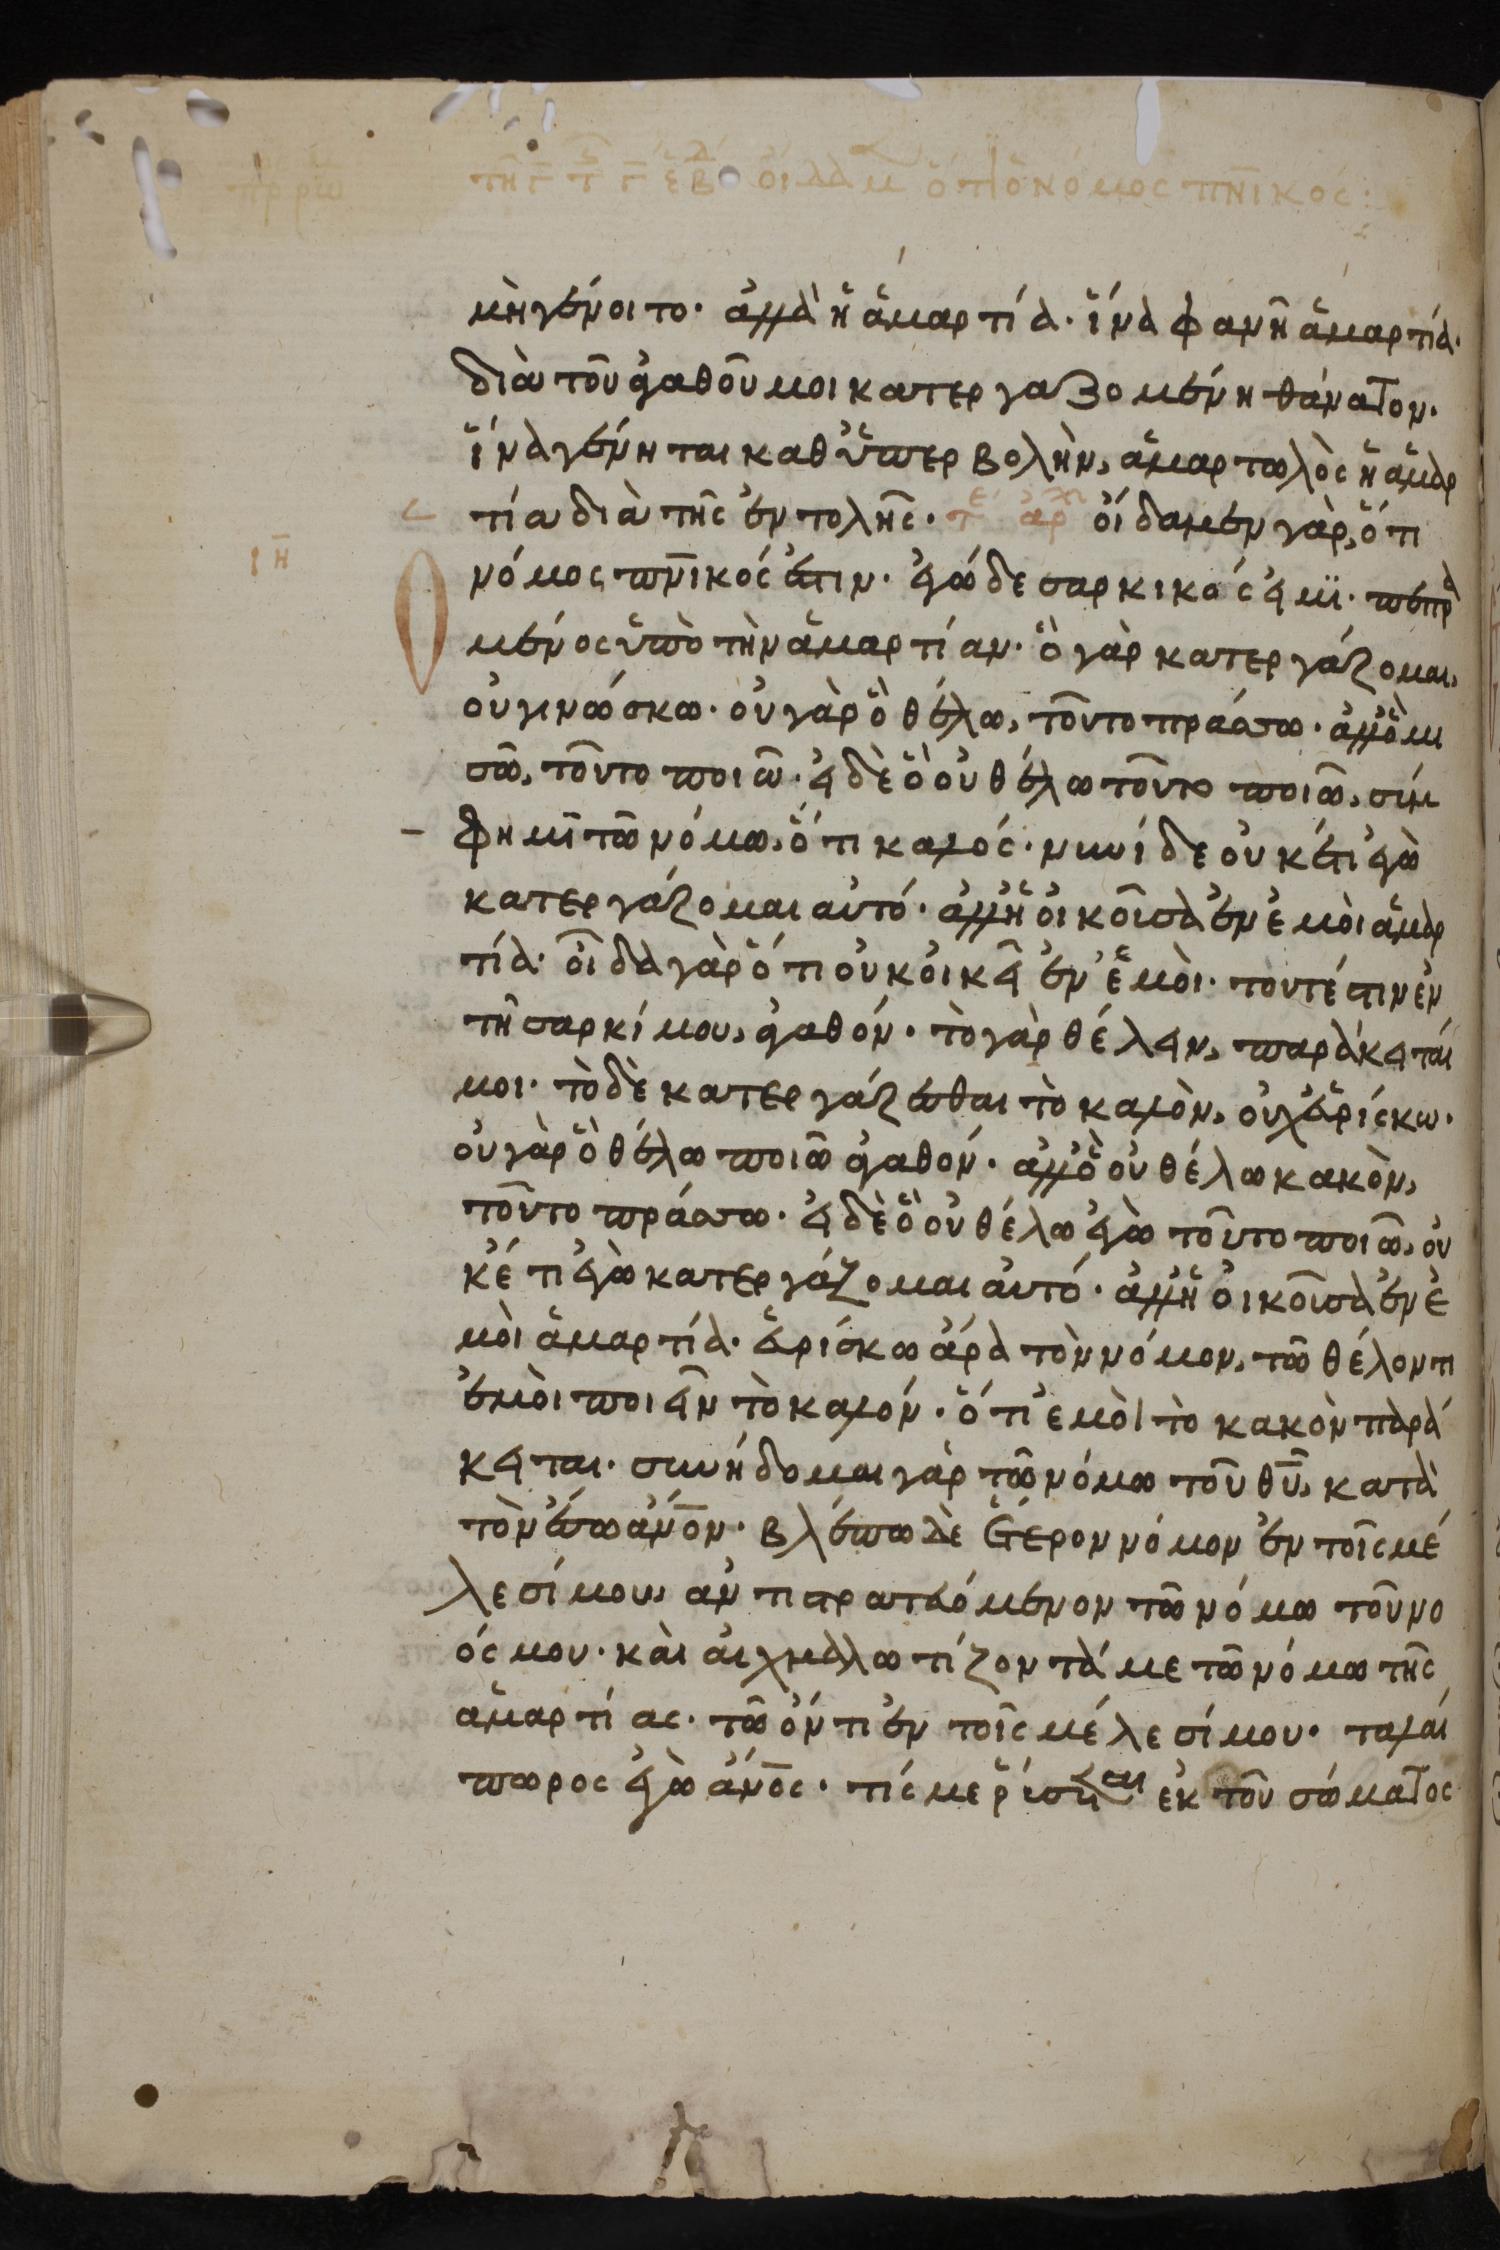 πρ ρω
της γ τ γ ἑβ οἴδαμ ὅτι ὁ νόμος πνικός:
μὴ γένοιτο· ἀλλὰ ἡ ἁμαρτία· ἵνα φανῆ ἁμαρτία·
διὰ τοῦ ἀγαθοῦ μοι κατεργαζομένη θάνατον·
ἵνα γένηται καθ' ὑπερβολὴν, ἁμαρτωλὸς ἡ ἁμαρ
τία διὰ τῆς ἐντολῆς· οἴδαμεν γὰρ, ὅτι
ιη
Ο νόμος πνικός ἐστιν· ἐγώ δε σαρκικός εἰμι· πεπρα
μένος ὑπὸ τὴν ἁμαρτίαν· ὃ γὰρ κατεργάζομαι,
οὐ γινώσκω· οὐ γὰρ ὃ θέλω, τοῦτο πράσσω· ἀλλ' ὃ μι
σῶ, τοῦτο ποιῶ· εἰ δὲ ὃ οὐ θέλω τοῦτο ποιῶ, σύμ
φημι τῶ νόμω, ὅτι καλός· νυνί δε οὐκέτι ἐγὼ
κατεργάζομαι αὐτό· ἀλλ' ἡ οἰκοῦσα ἐν ἐμοὶ ἁμαρ
τία· οἶδα γὰρ ὅτι οὐκ οἰκεῖ ἐν ἐμοὶ· τουτέστιν ἐν
τῆ σαρκί μου, ἀγαθόν· τὸ γὰρ θέλειν, παράκειταί
μοι· τὸ δὲ κατεργάζεσθαι τὸ καλὸν, οὐχ εὑρίσκω·
οὐ γὰρ ὃ θέλω ποιῶ ἀγαθόν· ἀλλ' ὃ οὐ θέλω κακὸν,
τοῦτο πράσσω· εἰ δὲ ὃ οὐ θέλω ἐγὼ τοῦτο ποιῶ, οὐ
κέτι ἐγὼ κατεργάζομαι αὐτό· ἀλλ' ἡ οἰκοῦσα ἐν ἐ
μοὶ ἁμαρτία· εὑρίσκω ἄρα τὸν νόμον, τῶ θέλοντι
ἐμοὶ ποιεῖν τὸ καλόν· ὅτι ἐμοὶ τὸ κακὸν παρά
κειται· συνήδομαι γὰρ τῶ νόμω τοῦ θυ, κατὰ
τὸν ἔσω ἀνον· βλέπω δὲ ἕτερον νόμον ἐν τοῖς μέ
λεσί μου, ἀντιστρατευόμενον τῶ νόμω τοῦ νο
ός μου· καὶ αἰχμαλωτίζοντά με τῶ νόμω τῆς
ἁμαρτίας· τῶ ὄντι ἐν τοῖς μέλεσί μου· ταλαί
πωρος ἐγὼ ἄνος· τίς με ῥύσεται ἐκ τοῦ σώματος